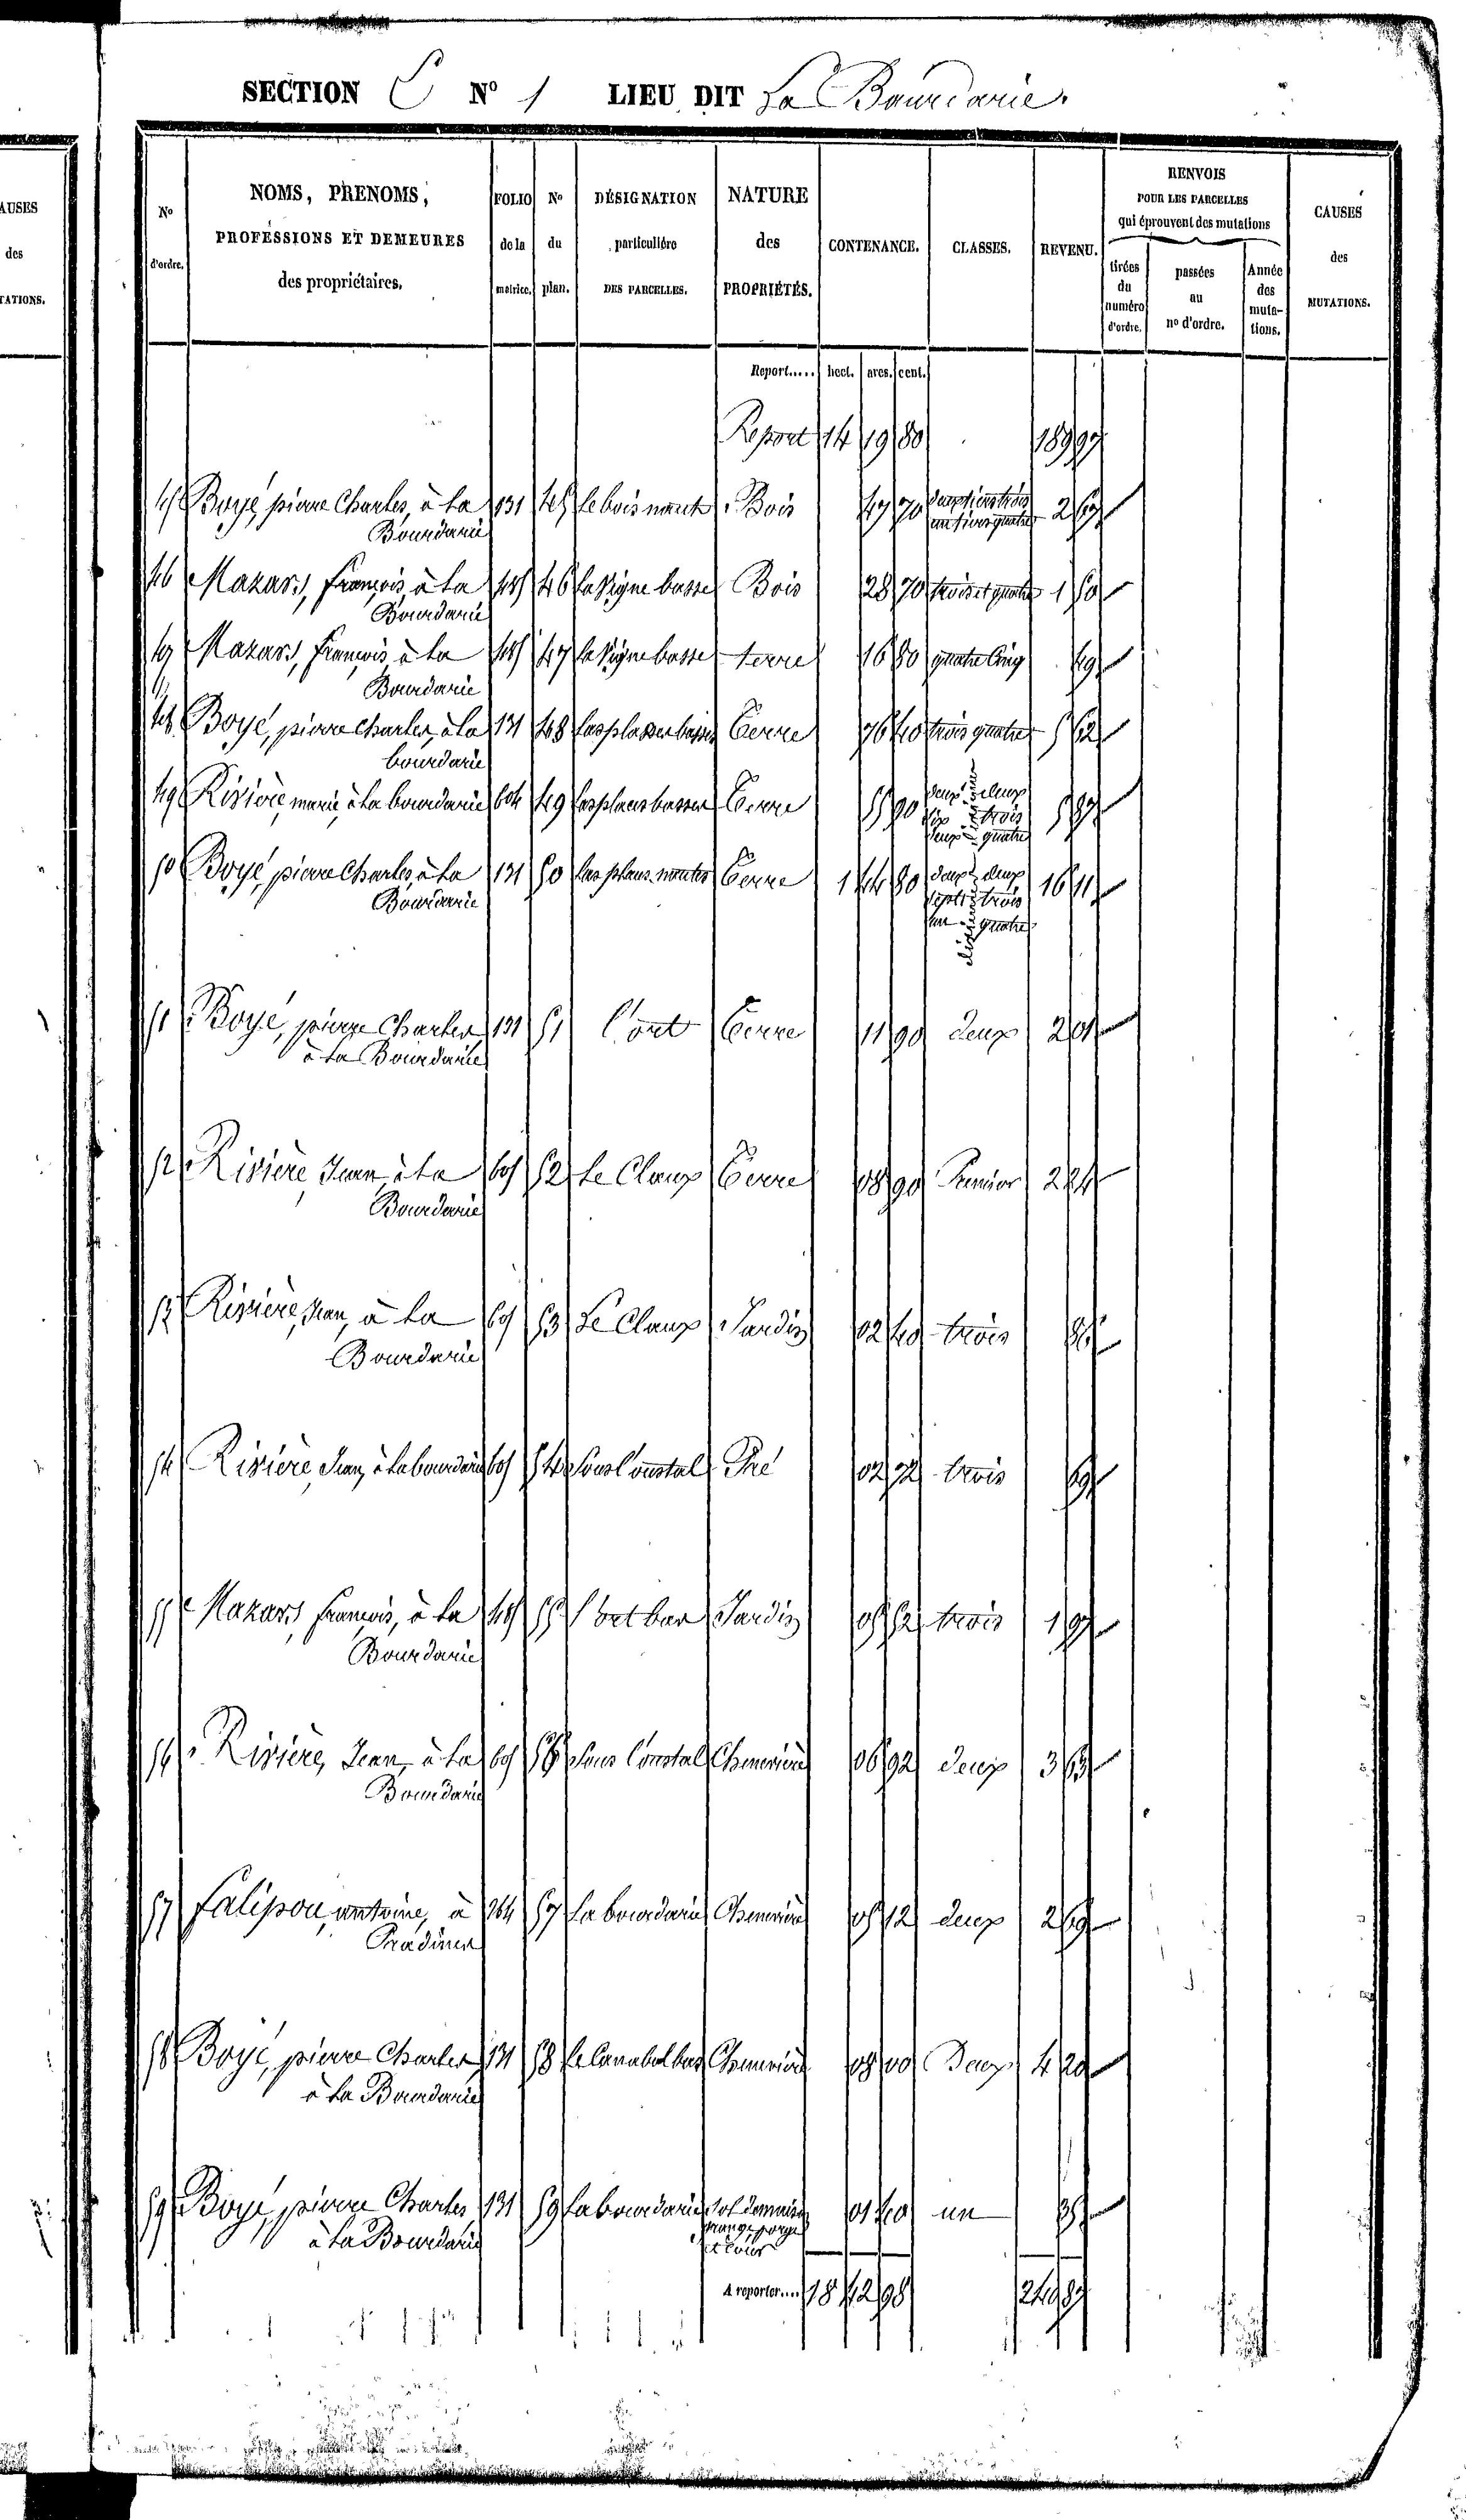 SECTION C N° 1 LIEU DIT La Bourdarie.
AUSES
des
TATIONS.
N° d'ordre.
NOMS, PRENOMS, PROFESSIONS ET DEMEURES des propriétaires.
FOLIO de la matrice.
N° du plan.
DÉSIGNATION particulière DES PARCELLES.
NATURE des PROPRIÉTÉS.
CONTENANCE.
CLASSES.
REVENU.
RENVOIS POUR LES PARCELLES qui éprouvent des mutations
tirées du numéro d'ordre.
passées au n° d'ordre.
Année des muta- tions.
CAUSES des MUTATIONS.
Report..... hect. ares. cent.
Report 14 19 80 189 97
45 Boyé, pierre Charles, à la 131 45 le bois Bois 47 70 deux tiers trois
Bourdarie un tiers quatre 2 67
46 Mazars, françois, à la 445 46 la Vigne basse Bois 28 70 trois et quatre 1
Bourdarie
47 Mazars, françois à la 445 47 la Vigne basse terre 16 80 quatre Cinq
Bourdarie
48 Boyé, pierre charles, à la 131 48 terre 76 40 trois quatre 5 62
bourdarie
49 Rivière, marie, à la bourdarie 604 49 terre 55 90 deux deux
trois
deux quatre
50 Boyé, pierre Charles, à la 131 50 terre 1 44 80 deux deux 16 11
Bourdarie sept trois
un quatre
51 Boyé, pierre Charles 131 51 L'ort terre 11 90 deux 2 01
à la Bourdarie
52 Rivière Jean à la 605 52 Le Claux terre 08 90 Premier 2 24
Bourdarie
53 Rivière, Jean, à la 605 53 Le Claux Jardin 02 40 trois
Bourdarie
54 Rivière, Jean, à la bourdarie 605 54 Sous L'oustal Pré 02 72 trois
55 Mazars françois, à la 445 55 L'ort bas Jardin 05 52 trois 1 97
Bourdarie
56 Rivière, Jean, à la 605 56 Sous L'oustal Chenevière 06 92 deux 3 63
Bourdarie
57 Falipou, antoine, à 264 57 La bourdarie Chenevière 05 12 deux 2 69
Pradines
58 Boyé, pierre Charles 131 58 Le Canabal bas Chenevière 08 00 Deux 4 20
à la Bourdarie
59 Boyé, pierre Charles 131 59 La bourdarie Sol de maison 01 40 un 35
à la Bourdarie grange, forge
et Cour
A reporter.... 18 42 98 240 87